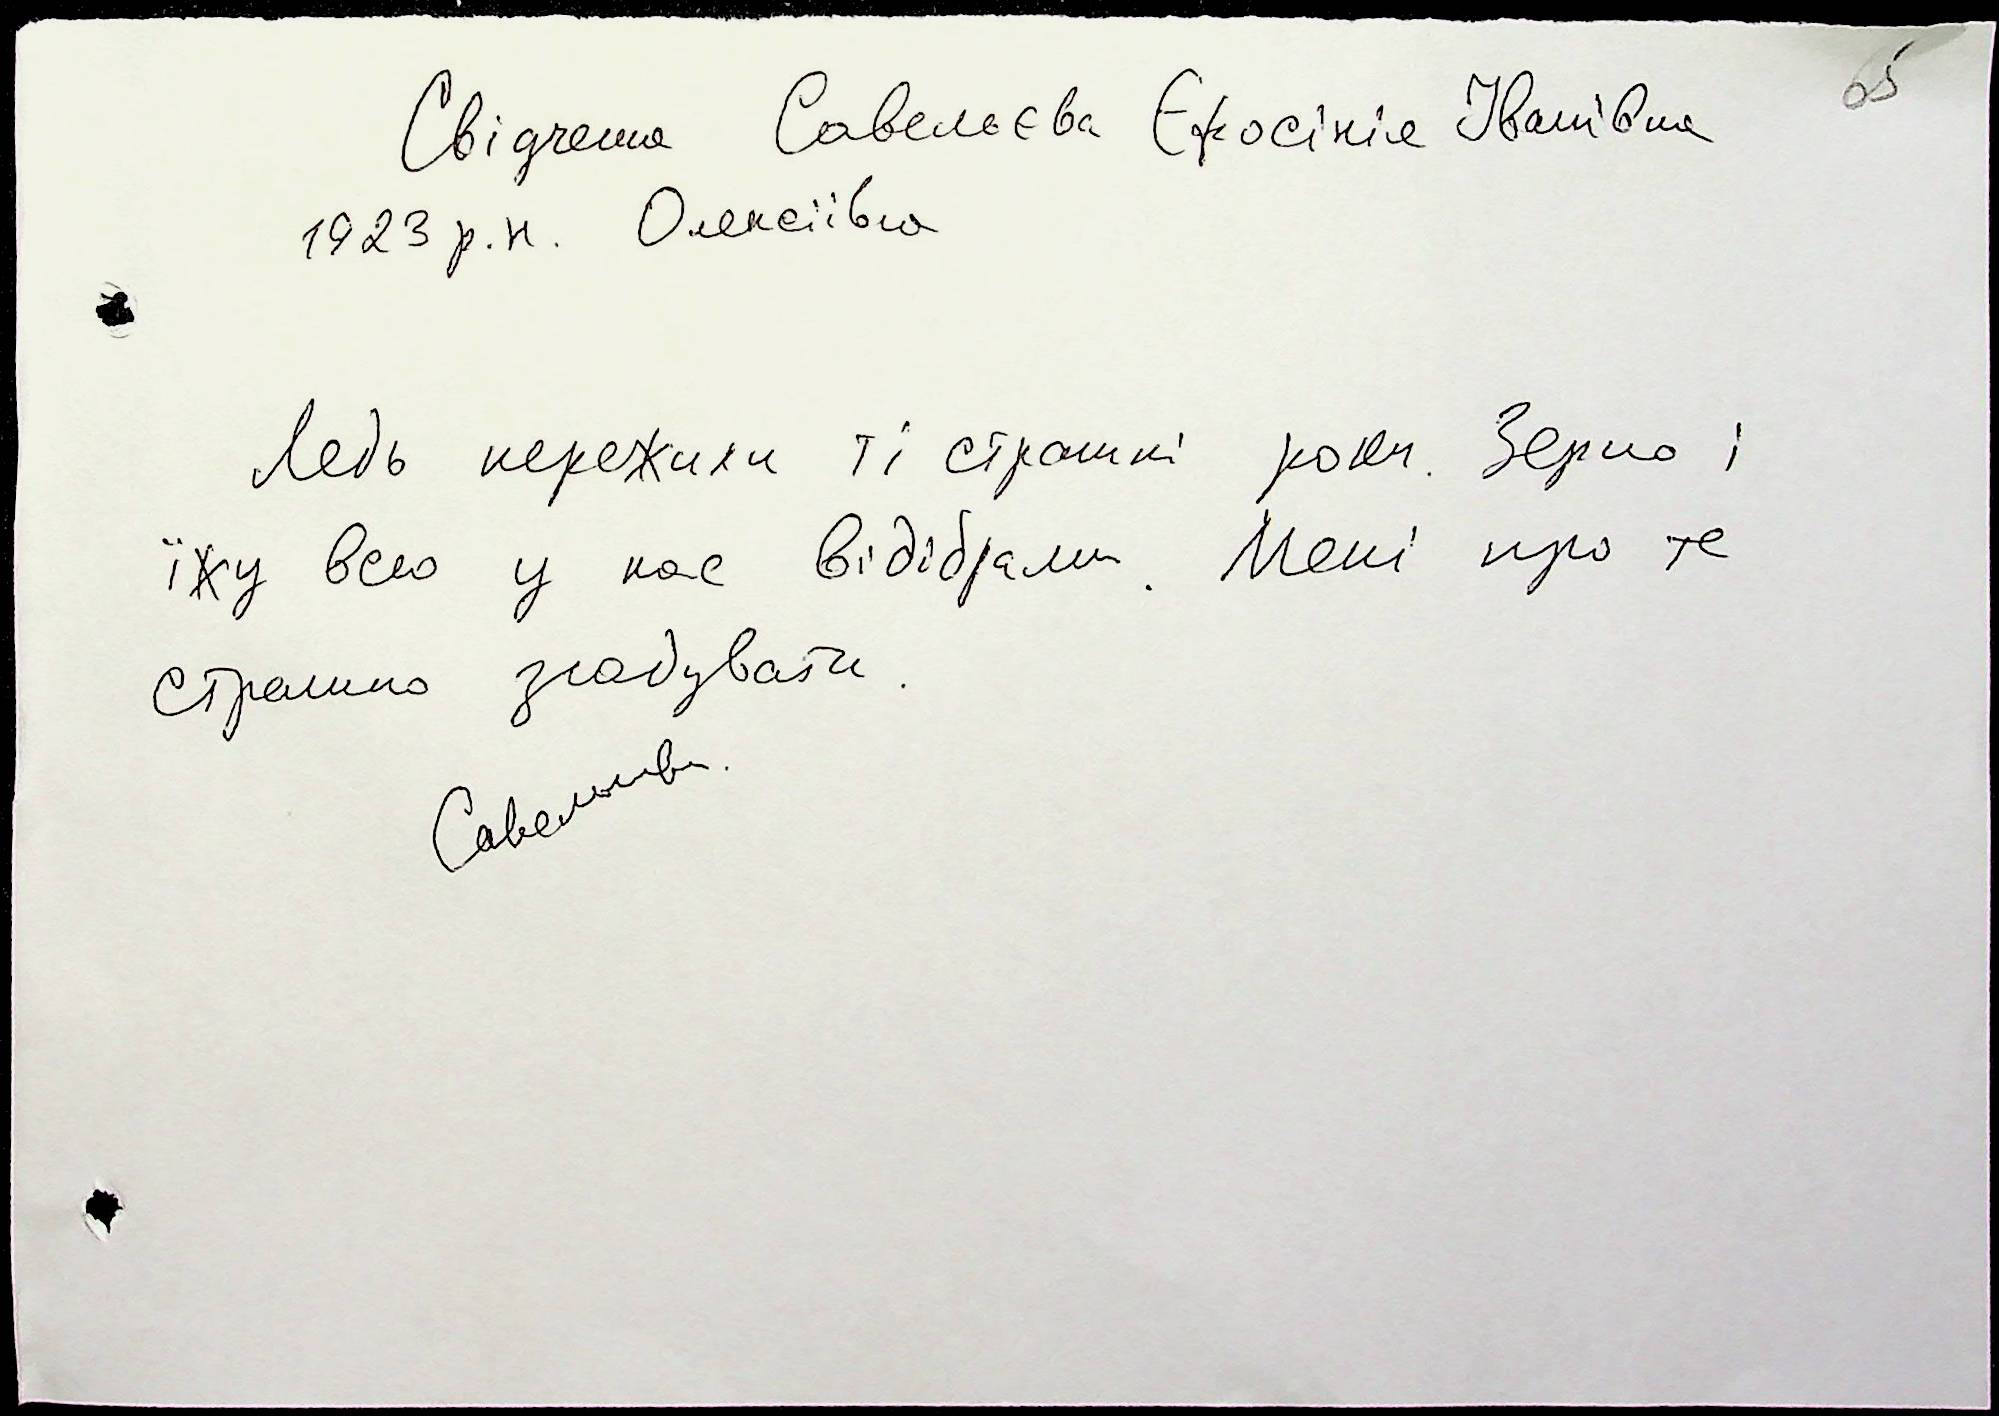 65
Свідчення Савельєва Єфосінія Іванівна
1923 р.н. Олексіївка
Ледь пережили ті страшні роки. Зерно і
їжу всю у нас відібрали. Мені про те
страшно згадувати.
Савельєва.